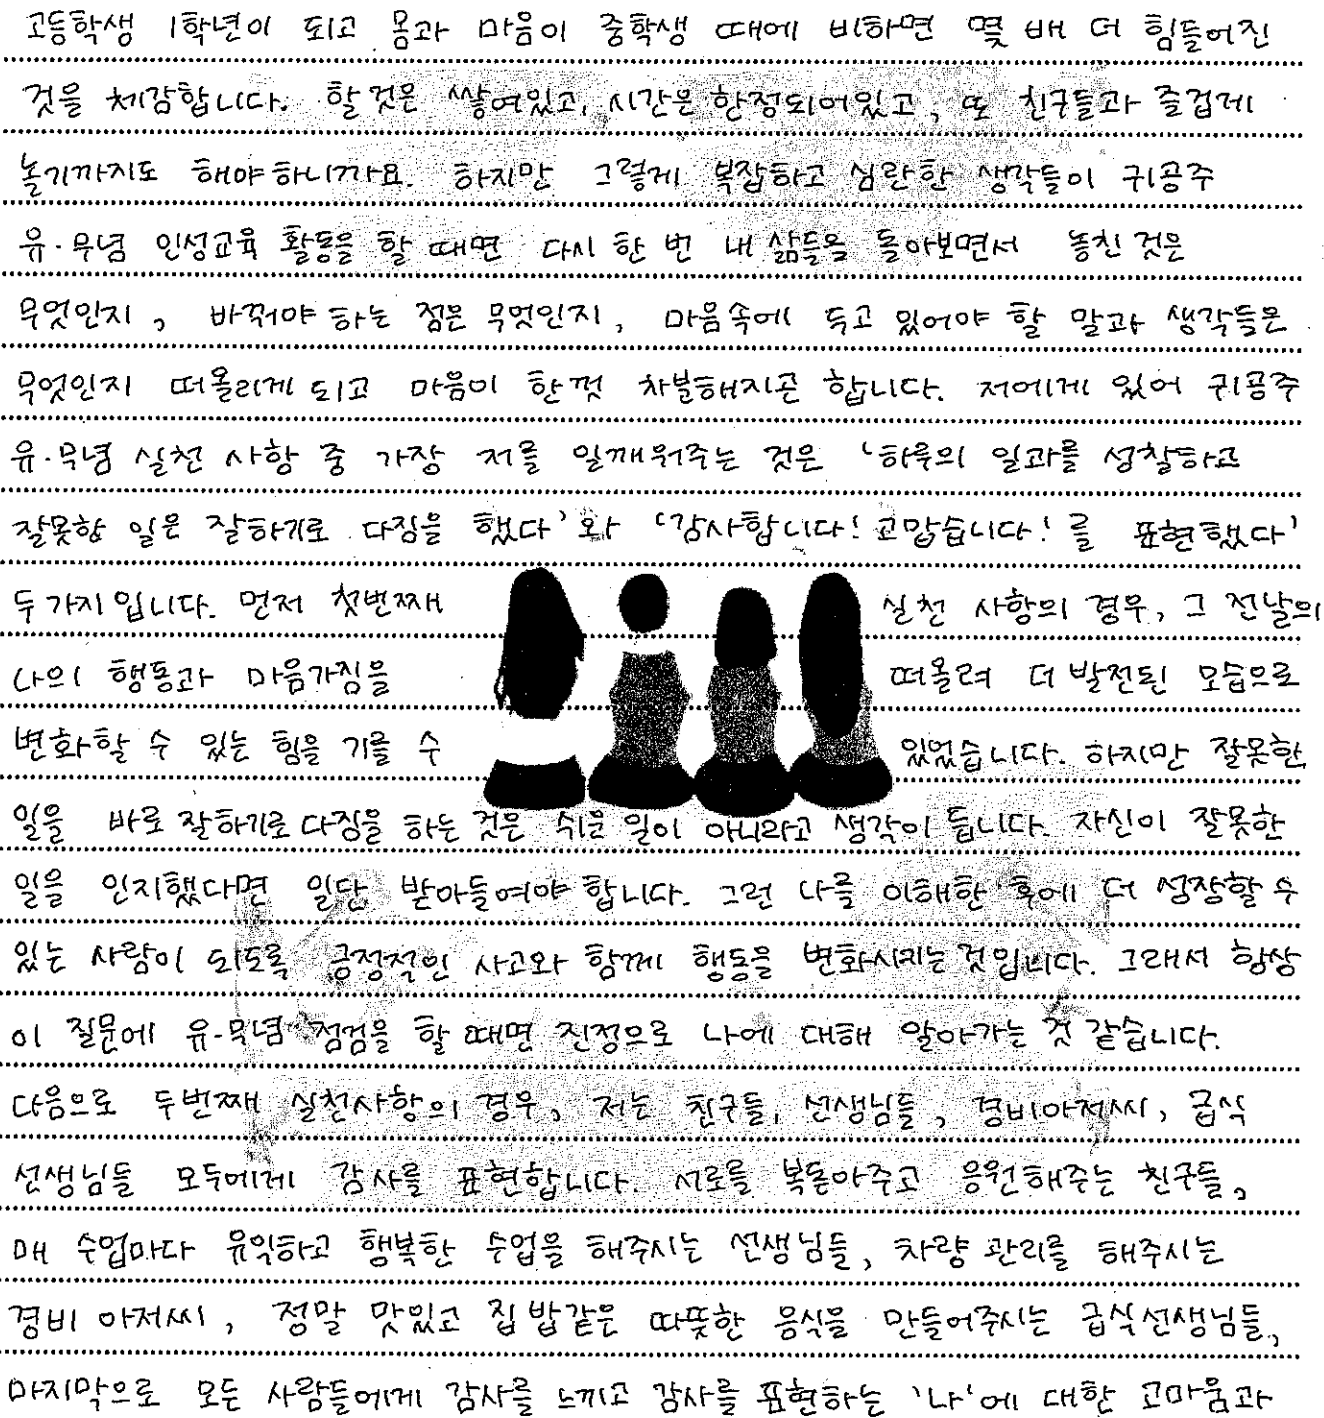 고등학생 1학년이 되고 몸과 마음이 중학생 때에 비하면 몇 배 더 힘들어진
것을 체감합니다. 할 것은 쌓여있고, 시간은 한정되어있고, 또 친구들과 즐겁게
놀기까지도 해야하니까요. 하지만 그렇게 복잡하고 심란한 생각들이 귀공주
유·무념 인성교육 활동을 할 때면 다시 한 번 내 삶들을 돌아보면서 놓친 것은
무엇인지, 바꿔야 하는 점은 무엇인지, 마음속에 두고 있어야 할 말과 생각들은
무엇인지 떠올리게 되고 마음이 한껏 차분해지곤 합니다. 저에게 있어 귀공주
유·무념 실천 사항 중 가장 저를 일깨워주는 것은 '하루의 일과를 성찰하고
잘못한 일은 잘하기로 다짐을 했다'와 '감사합니다! 고맙습니다! 를 표현했다'
두 가지 입니다. 먼저 첫번째 실천 사항의 경우, 그 전날의
나의 행동과 마음가짐을 떠올려 더 발전된 모습으로
변화할 수 있는 힘을 기를 수 있었습니다. 하지만 잘못한
일을 바로 잘하기로 다짐을 하는 것은 쉬운 일이 아니라고 생각이 듭니다. 자신이 잘못한
일을 인지했다면 일단 받아들여야 합니다. 그런 나를 이해한 후에 더 성장할 수
있는 사람이 되도록 긍정적인 사고와 함께 행동을 변화시키는 것입니다. 그래서 항상
이 질문에 유·무념 점검을 할 때면 진정으로 나에 대해 알아가는 것 같습니다.
다음으로 두번째 실천사항의 경우, 저는 친구들, 선생님들, 경비아저씨, 급식
선생님들 모두에게 감사를 표현합니다. 서로를 복돋아주고 응원해주는 친구들,
매 수업마다 유익하고 행복한 수업을 해주시는 선생님들, 차량 관리를 해주시는
경비 아저씨, 정말 맛있고 집밥같은 따뜻한 음식을 만들어주시는 급식선생님들,
마지막으로 모든 사람들에게 감사를 느끼고 감사를 표현하는 '나'에 대한 고마움과